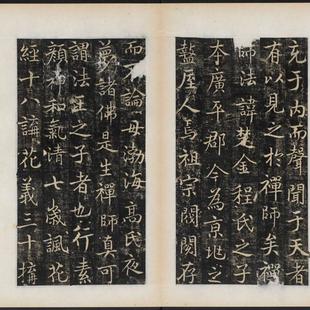 充于內而聲聞于天者
有以見之於禪師矣禪
師法諱楚金程氏之子
本廣平郡今為京兆之
盩厔人焉祖宗閥閱存
而不論母渤海高氏夜
夢諸佛是生禪師真可
謂法王之子者也行素
顏神和氣清七歲諷花
經十八講花義三十搆